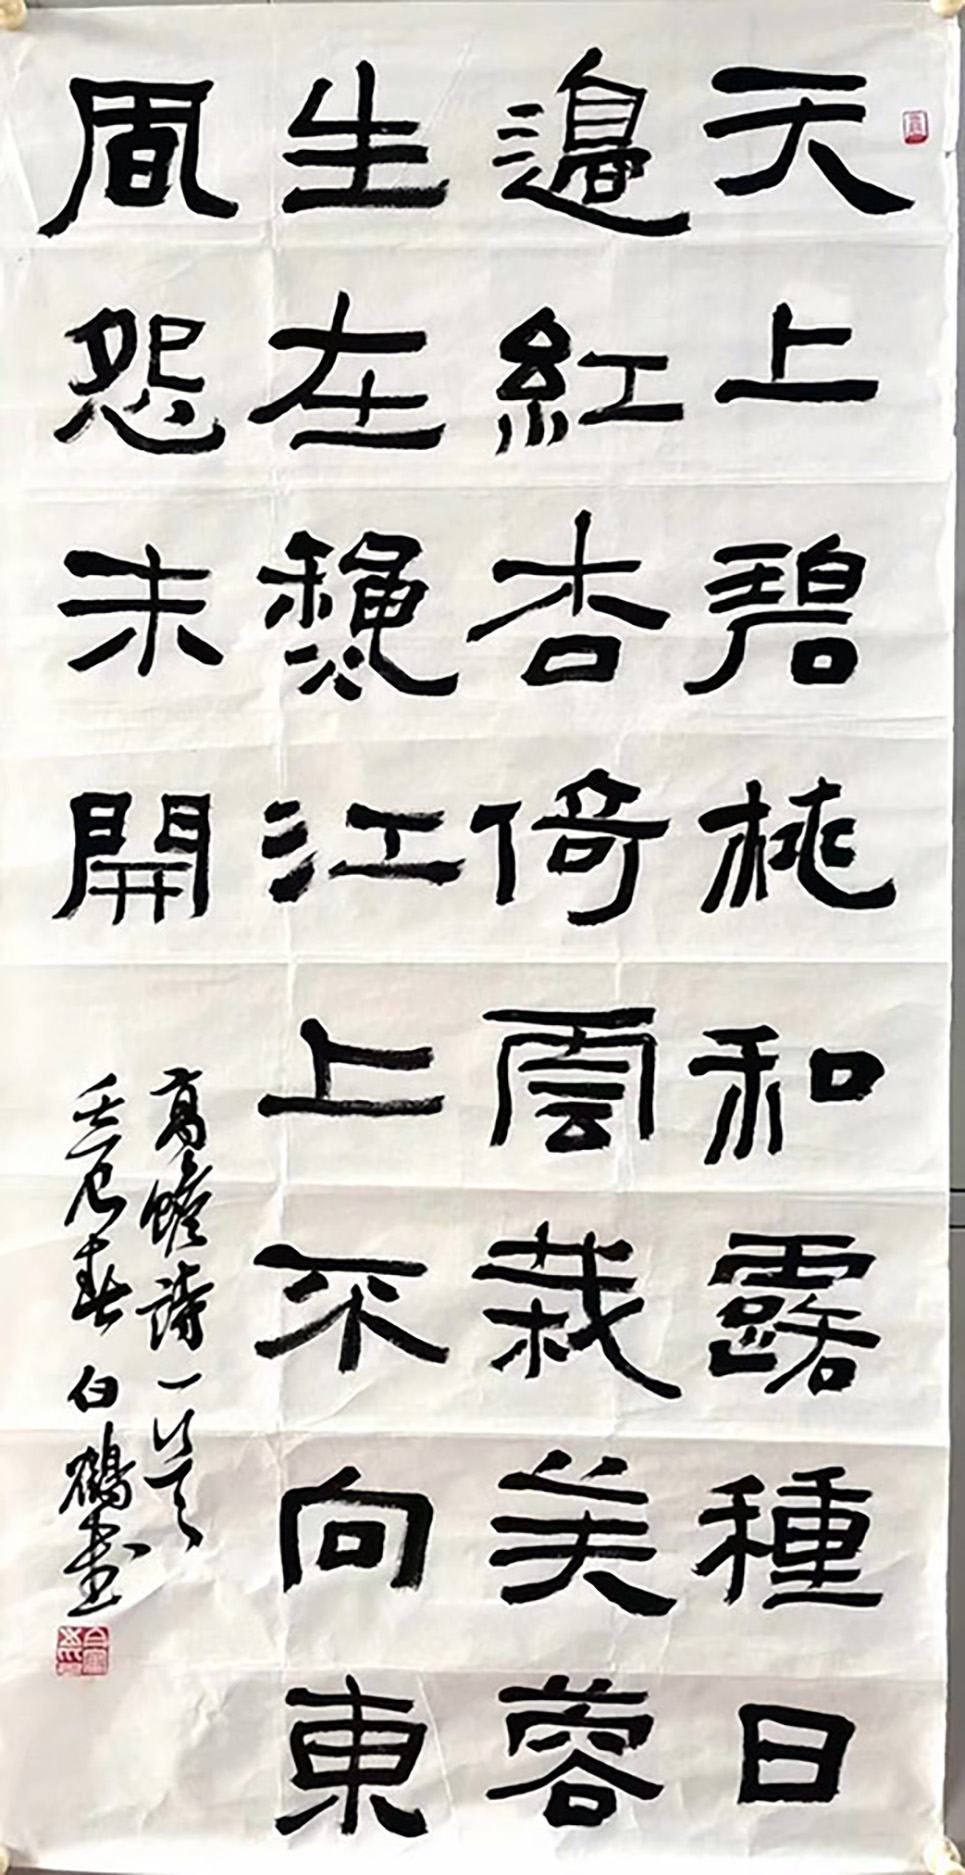 天上碧桃和露種日
邊紅杏倚雲栽芙蓉
生在龝江上不向東
凮怨未開
高蟾詩一
壬辰春白鶴書